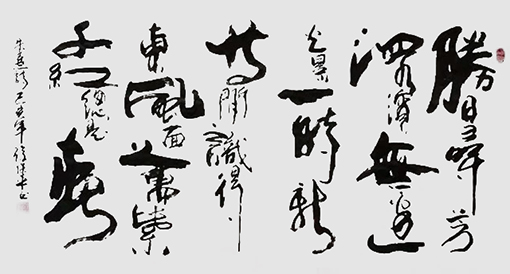 勝日尋芳
泗水濱無邊
光景一時新
等閒識得
東風面萬紫
千紅總是春
朱熹詩 年 书